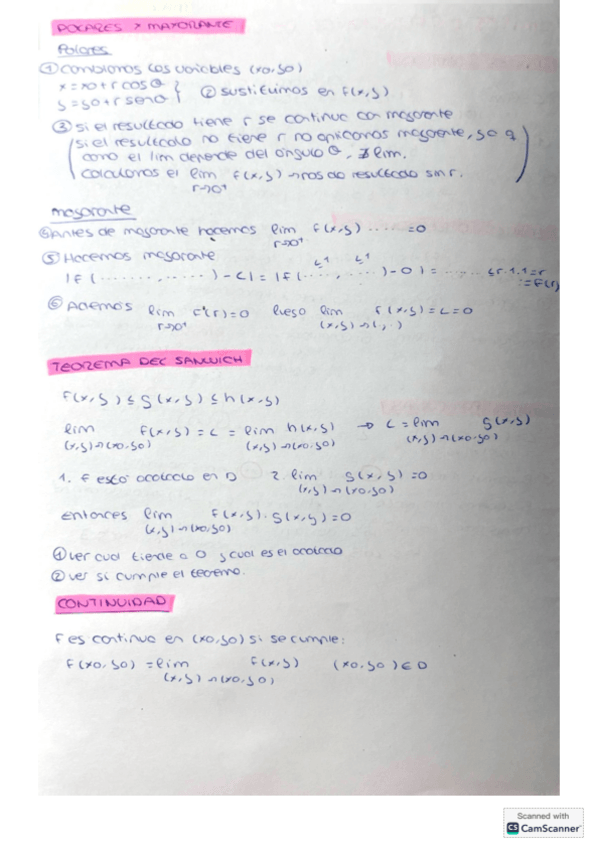 POLARES Y MAYORANTE
Polares
① cambiamos las variables (x0,y0)
x = x0 + r cosθ
y = y0 + r senθ } ② sustituimos en f(x,y)
③ si el resultado tiene r se continua con mayorante
si el resultado no tiene r no aplicamos mayorante, ya q
como el lim depende del ángulo θ, ∄ lim.
calculamos el lim f(x,y) → nos da resultado sin r.
r→0⁺
mayorante
④ Antes de mayorante hacemos lim f(x,y) ..... = 0
r→0⁺
⑤ Hacemos mayorante
≤1 ≤1
|f(........, ......) - L| = |f(....., ......) - 0| = ...... ≤ r·1·1 = r
:= F(r)
⑥ Además lim F(r) = 0 luego lim f(x,y) = L = 0
r→0⁺ (x,y)→(,.)
TEOREMA DEL SANWICH
f(x,y) ≤ g(x,y) ≤ h(x,y)
lim f(x,y) = L = lim h(x,y) → L = lim g(x,y)
(x,y)→(x0,y0) (x,y)→(x0,y0) (x,y)→(x0,y0)
1. f está acotada en D 2. lim g(x,y) = 0
(x,y)→(x0,y0)
entonces lim f(x,y)·g(x,y) = 0
(x,y)→(x0,y0)
① ver cual tiende a 0 y cual es el acotado
② ver si cumple el teorema.
CONTINUIDAD
F es continua en (x0,y0) si se cumple:
f(x0,y0) = lim f(x,y) (x0,y0) ∈ D
(x,y)→(x0,y0)
Scanned with
CS CamScanner